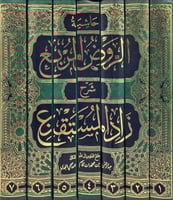 حاشية
الروض المربع
شرح
زاد المستقنع
٧ ٦ ٥ ٤ ٣ ٢ ١